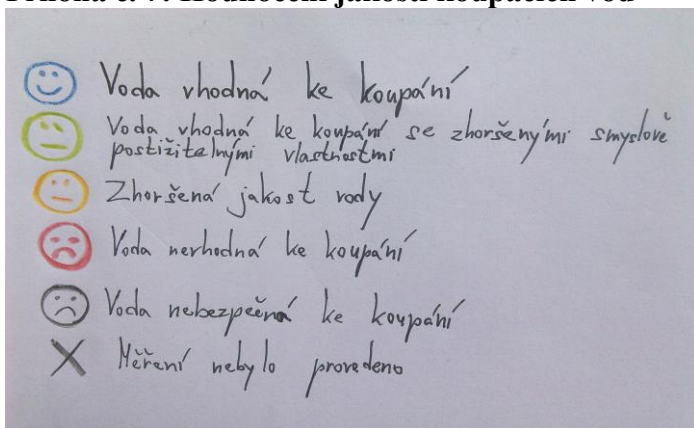 Voda vhodná ke koupání
Voda vhodná ke koupání se zhoršenými smyslově
postižitelnými vlastnostmi
Zhoršená jakost vody
Voda nevhodná ke koupání
Voda nebezpečná ke koupání
Měření nebylo provedeno